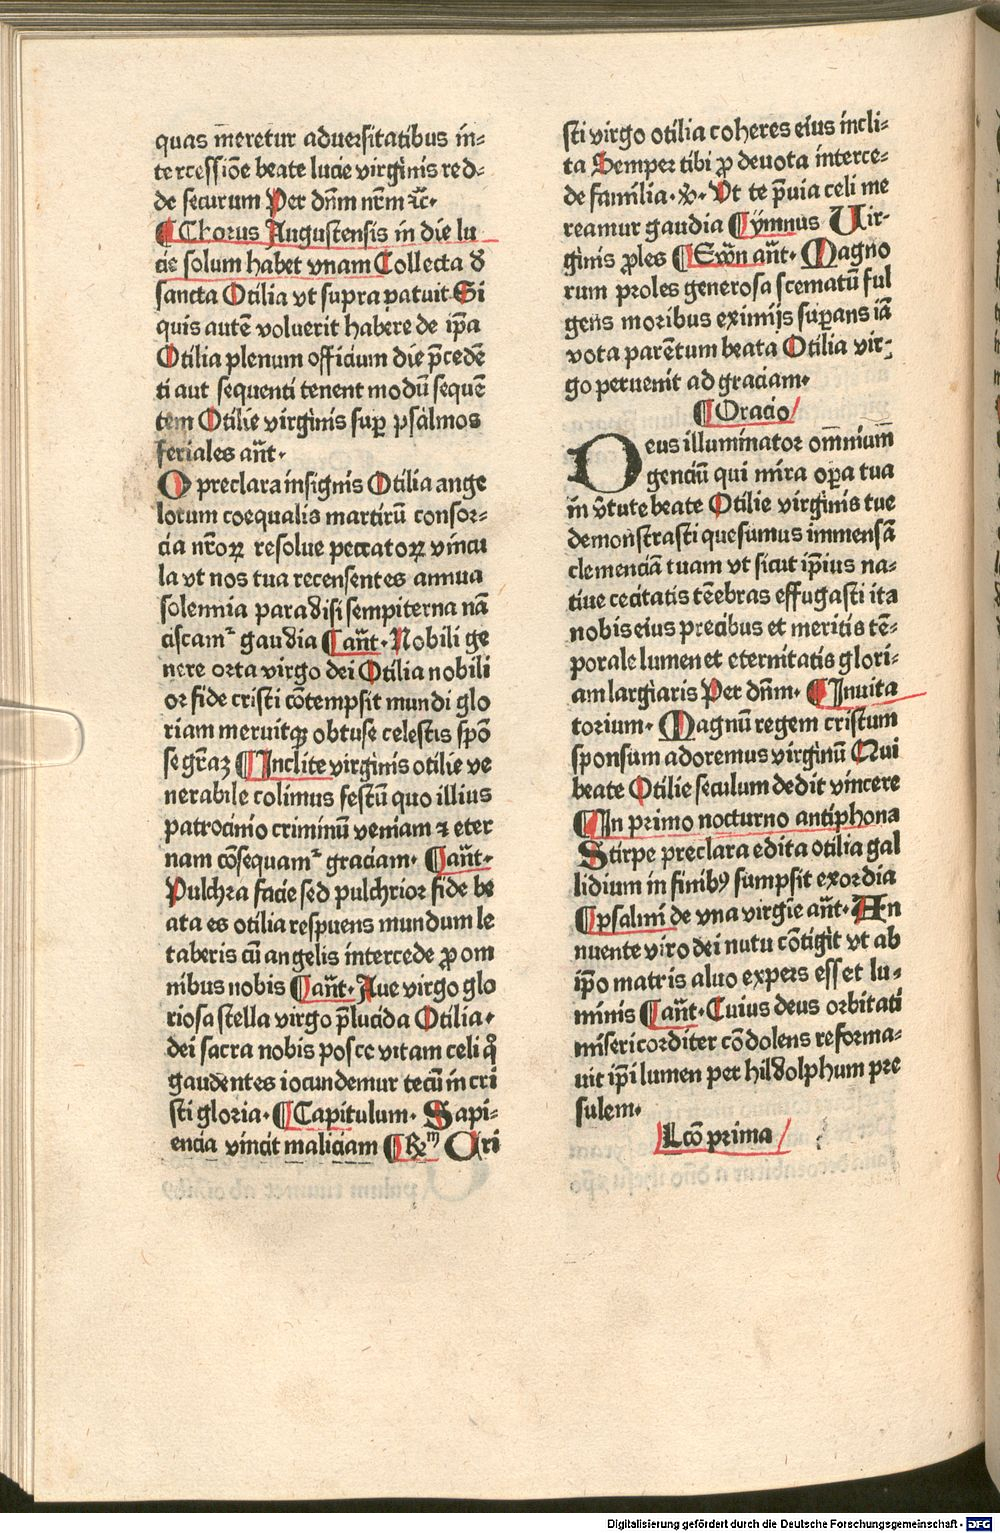 quas meretur aduersitatibus in⸗
tercessiōe beate lucie virginis red⸗
de securum Per dn̄m nr̄m ⁊c̄.
¶ Chorus Augustensis in die lu
cie solum habet vnam Collecta ꝺ
sancta Otilia vt supra patuit Si
quis autē voluerit habere de ip̄a
Otilia plenum officium die p̄cedē
ti aut sequenti tenent modū sequē
tem Otilie virginis suꝑ psalmos
feriales an̄t.
O preclara insignis Otilia ange
lorum coequalis martirū consor⸗
cia nr̄oꝝ resolue peccatoꝝ vincu
la vt nos tua recensentes annua
solennia paradisi sempiterna nā
ciscam᷑ gaudia ¶ an̄t. Nobili ge
nere orta virgo dei Otilia nobili
or fide cristi cōtempsit mundi glo
riam meruitqꝫ obtuse celestis spō
se gr̄aꝫ ¶ Inclite virginis otilie ve
nerabile colimus festū quo illius
patrocinio criminū veniam ⁊ eter
nam cōsequam᷑ graciam. ¶ an̄t.
Pulchra facie sed pulchrior fide be
ata es otilia respuens mundum le
taberis cū angelis intercede ꝓ om
nibus nobis ¶ an̄t. Aue virgo glo
riosa stella virgo p̄lucida Otilia.
dei sacra nobis posce vitam celi q̄
gaudentes iocundemur tecū in cri
sti gloria. ¶ Capitulum. Sapi⸗
encia vincit maliciam ¶ R̄m Cri
sti virgo otilia coheres eius incli⸗
ta Semper tibi ꝓ deuota interce⸗
de familia. ℣. Vt te p̄uia celi me
reamur gaudia ¶ Ymnus Vir⸗
ginis ꝓles ¶ Ewn̄ an̄t. Magno
rum proles generosa scematū ful
gens moribus eximijs suꝑans iā
vota parētum beata Otilia vir⸗
go peruenit ad graciam.
¶ Oracio
Deus illuminator omniūm
genciū qui mira oꝑa tua
in v̄tute beate Otilie virginis tue
demonstrasti quesumus immensā
clemenciā tuam vt sicut ip̄ius na⸗
tiue cecitatis tēebras effugasti ita
nobis eius precibus et meritis tē⸗
porale lumen et eternitatis glori⸗
am largiaris Per dn̄m. ¶ Inuita
torium. Magnū regem cristum
sponsum adoremus virginū Qui
beate Otilie seculum dedit vincere
¶ In primo nocturno antiphona
Stirpe preclara edita otilia gal
lidium in finibꝰ sumpsit exordia
¶ psalmi de vna virgīe an̄t. An
nuente viro dei nutu cōtigit vt ab
ip̄o matris aluo expers esset lu⸗
minis ¶ an̄t. Cuius deus orbitati
misericorditer cōdolens reforma⸗
uit ip̄i lumen per hildolphum pre
sulem.
Lcō prima
Digitalisierung gefördert durch die Deutsche Forschungsgemeinschaft - DFG